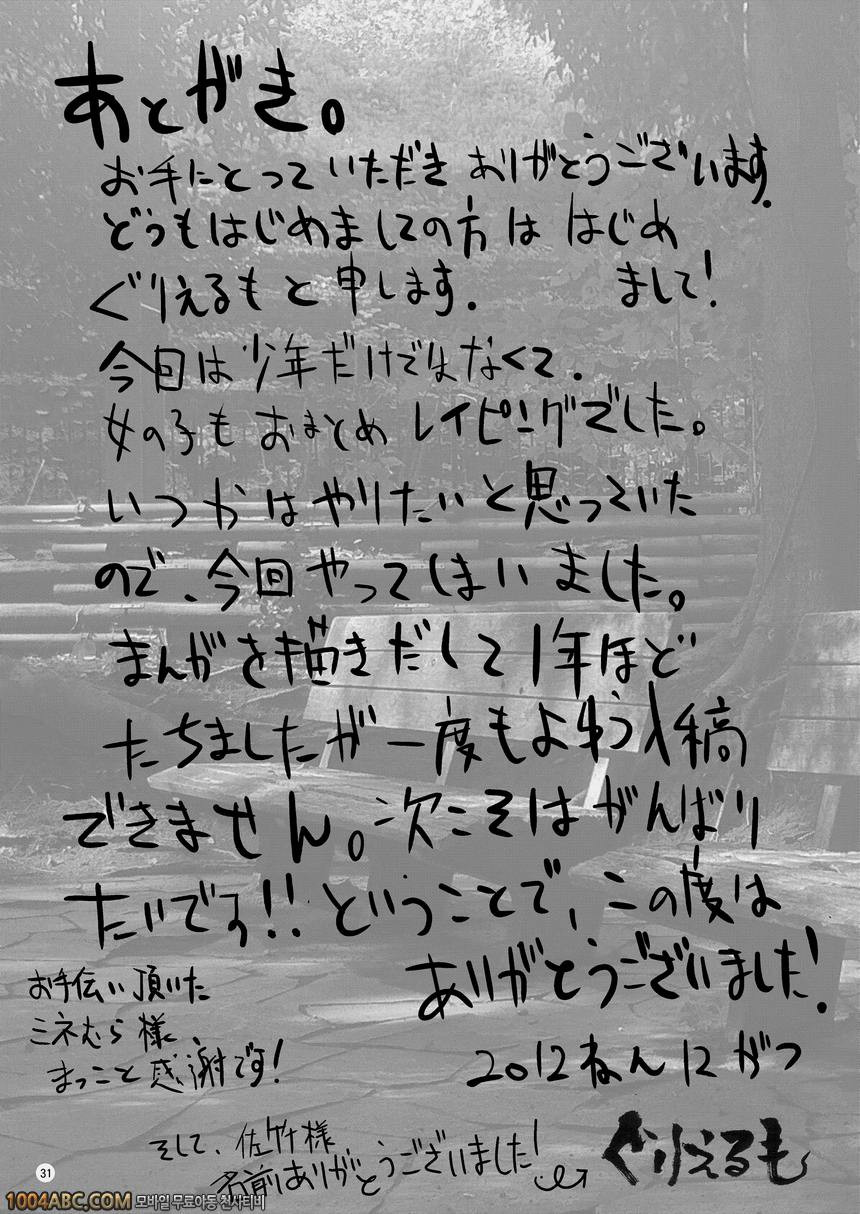 あとがき。
お手にとっていただき ありがとうございます.
どうもはじめましての方は はじめ
まして!
ぐりえるもと申します.
今回は少年だけではなくて.
女の子もおまとめ レイピングでした。
いつかはやりたいと思っていた
ので、今回やってしまいました。
まんがを描きだして1年ほど
たちましたが一度もよゆう入稿
できません。次こそはがんばり
たいです!! ということで、この度は
ありがとうございました!
お手伝い頂いた
ミネむら様
まっこと感謝です!
2012ねん12がつ
そして、佐竹様
名前ありがとうございました!
ぐりえるも
31
1004ABC.COM 모바일 무료야동 천사티비